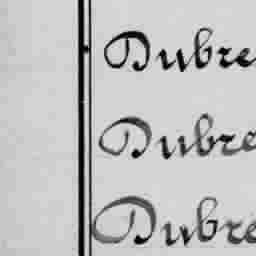 Dubre
Dubre
Dubre